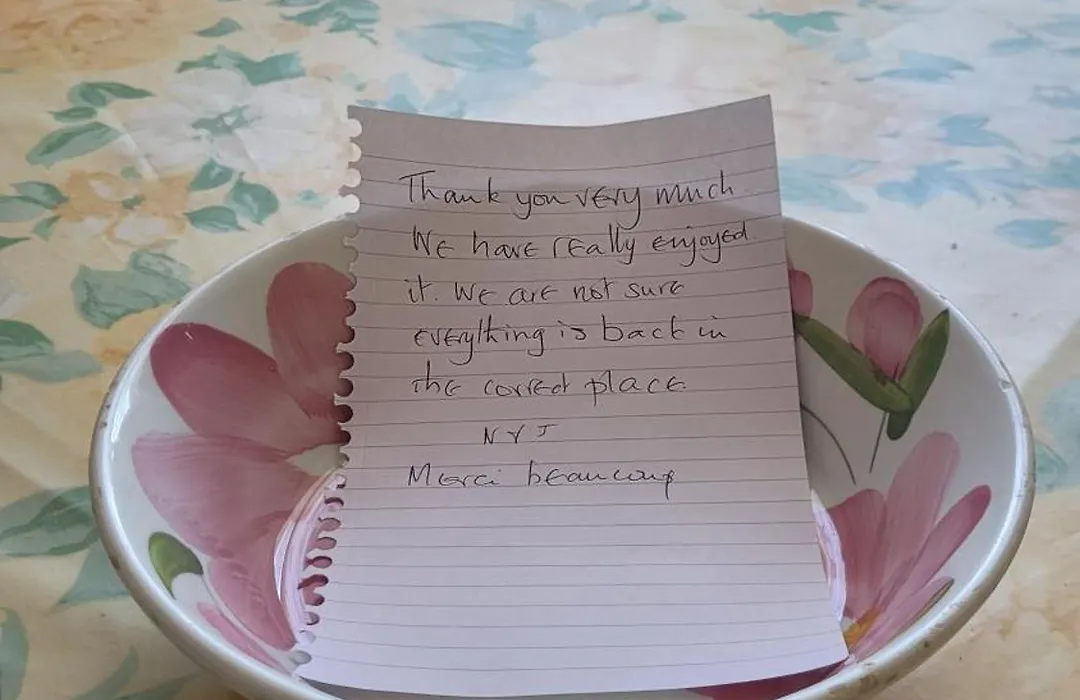 Thank you very much
We have really enjoyed
it. We are not sure
everything is back in
the correct place.
N Y J
Merci beaucoup